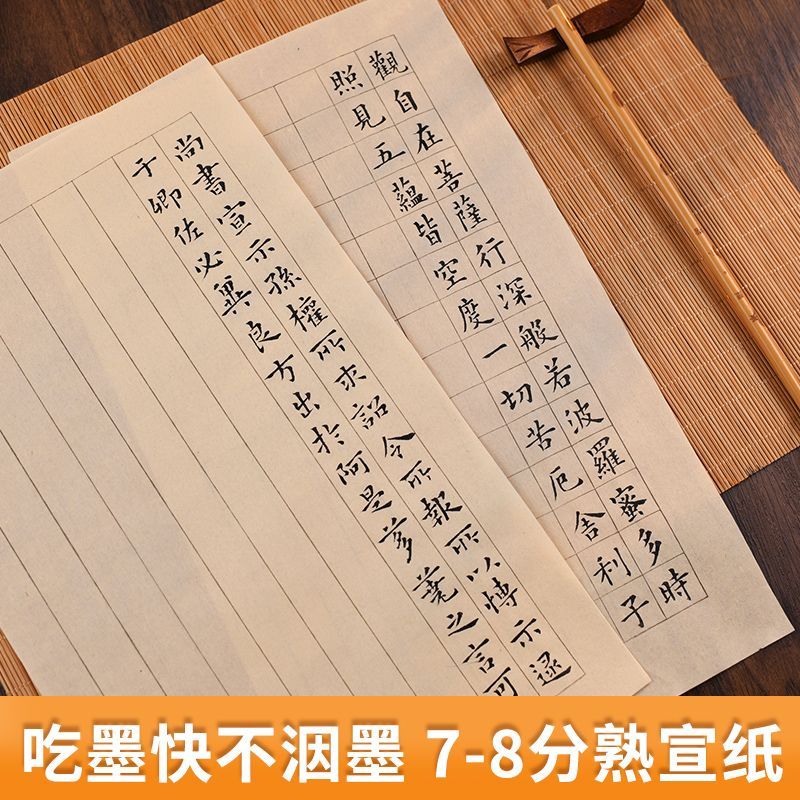 觀自在菩薩行深般若波羅蜜多時
照見五蘊皆空度一切苦厄舍利子
尚書宣示孫權所求詔令所報所以愽示逮
于卿佐必冀良方出於阿是芻蕘之言可
吃墨快不洇墨 7-8分熟宣纸